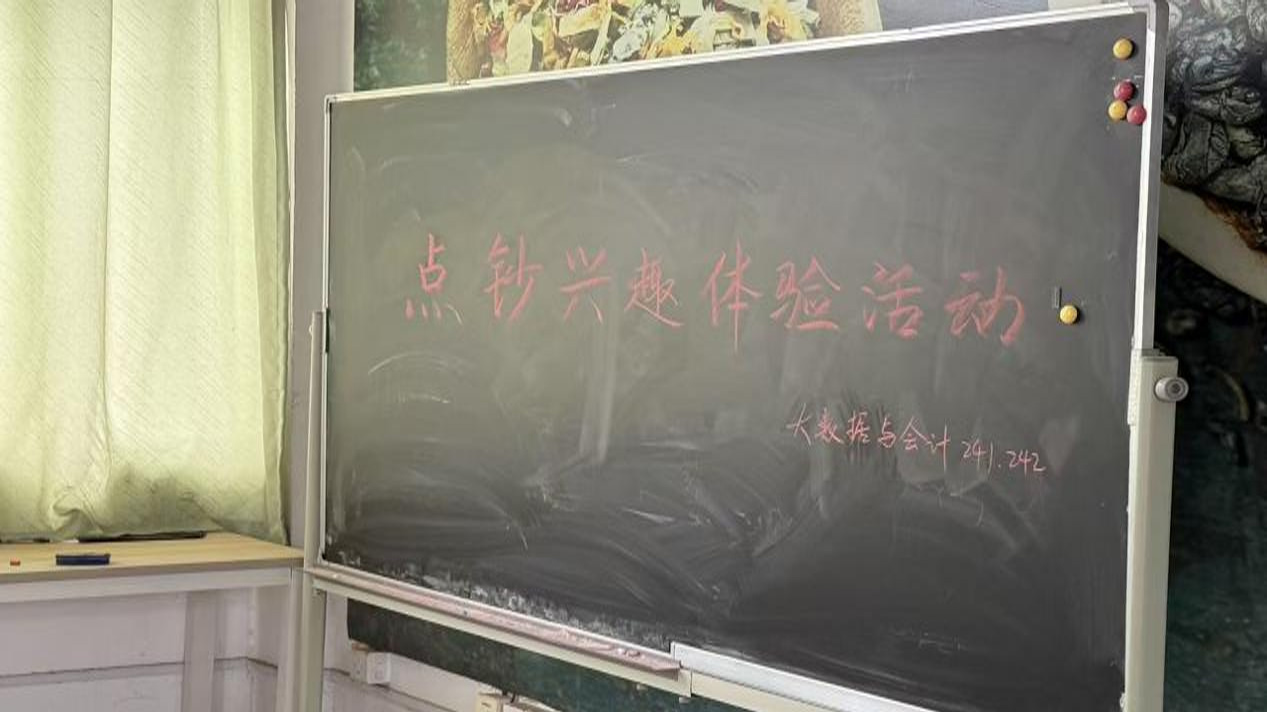 点钞兴趣体验活动
大数据与会计241.242